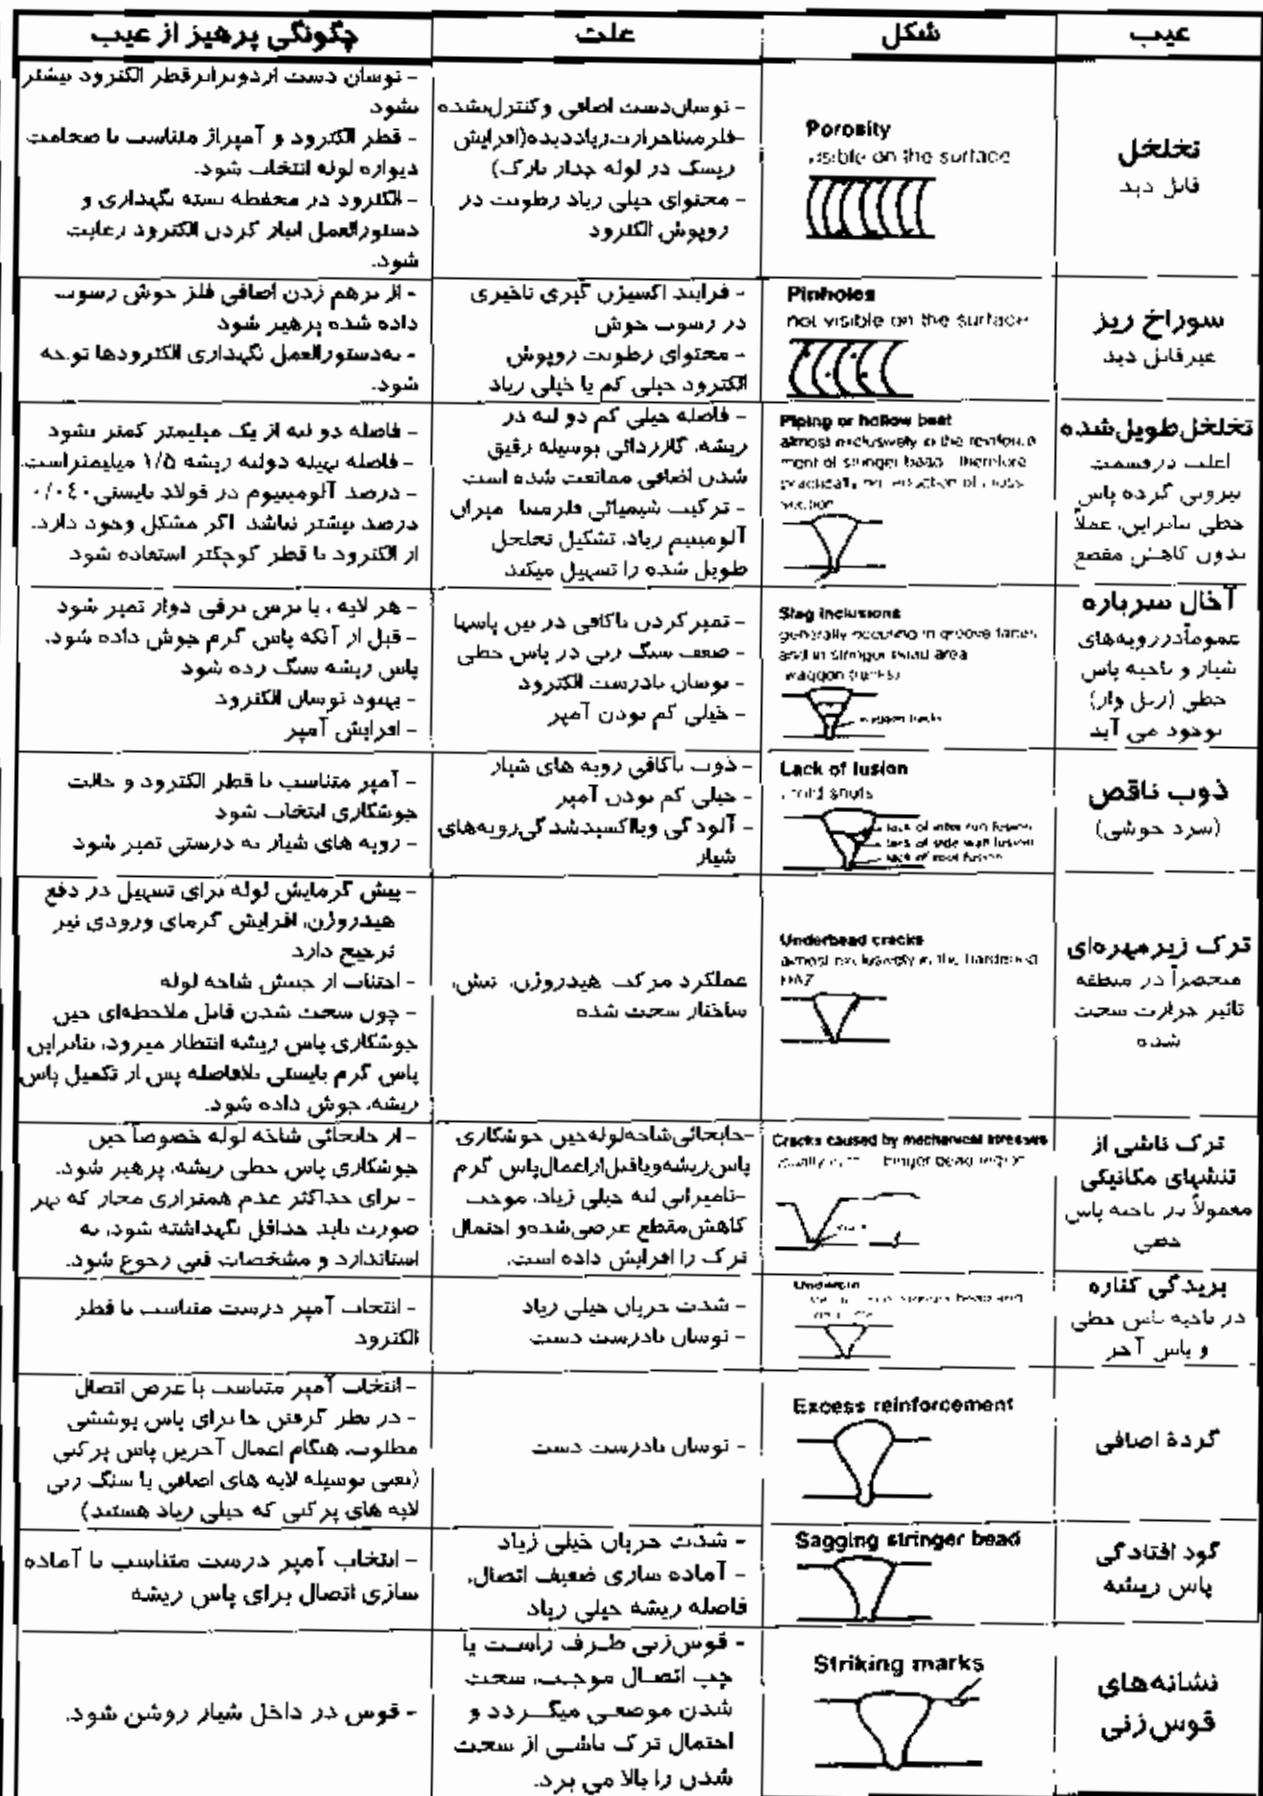 عیب
شکل
علت
چگونگی پرهیز از عیب
تخلخل
قابل دید
Porosity
visible on the surface
- نوسان دست اضافی و کنترل نشده
- فلز مبنا حرارت زیاد دیده (افزایش
ریسک در لوله جدار نازک)
- محتوای خیلی زیاد رطوبت در
روپوش الکترود
- نوسان دست از دو برابر قطر الکترود بیشتر
نشود
- قطر الکترود و آمپراژ متناسب با ضخامت
دیواره لوله انتخاب شود.
- الکترود در محفظه بسته نگهداری و
دستورالعمل انبار کردن الکترود رعایت
شود.
سوراخ ریز
غیرقابل دید
Pinholes
not visible on the surface
- فرایند اکسیژن گیری تاخیری
در رسوب جوش
- محتوای رطوبت روپوش
الکترود خیلی کم یا خیلی زیاد
- از برهم زدن اضافی فلز جوش رسوب
داده شده پرهیز شود
- به دستورالعمل نگهداری الکترودها توجه
شود.
تخلخل طویل شده
اغلب در قسمت
بیرونی گرده پاس
خطی بنابراین، عملاً
بدون کاهش مقطع
Piping or hollow beat
almost exclusively in the reinforce
ment of stringer bead therefore
practically no reduction of cross
section
- فاصله خیلی کم دو لبه در
ریشه، گاززدائی بوسیله رقیق
شدن اضافی ممانعت شده است
- ترکیب شیمیائی فلز مبنا میزان
آلومینیم زیاد، تشکیل تخلخل
طویل شده را تسهیل میکند
- فاصله دو لبه از یک میلیمتر کمتر نشود
- فاصله بهینه دولبه ریشه ۱/۵ میلیمتر است.
- درصد آلومینیوم در فولاد بایستی ۰/۰۴۰
درصد بیشتر نباشد اگر مشکل وجود دارد.
از الکترود با قطر کوچکتر استفاده شود
آخال سرباره
عموماً در رویه های
شیار و ناحیه پاس
خطی (ریل واز)
بوجود می آید
Slag inclusions
generally occuring in groove faces
and in stringer bead area
waggon tracks)
waggon tracks
- تمیز کردن ناکافی در بین پاسها
- ضعف سنگ زنی در پاس خطی
- نوسان نادرست الکترود
- خیلی کم بودن آمپر
- هر لایه ، با برس برقی دوار تمیز شود
- قبل از آنکه پاس گرم جوش داده شود،
پاس ریشه سنگ زده شود
- بهبود نوسان الکترود
- افزایش آمپر
ذوب ناقص
(سرد جوشی)
Lack of fusion
cold shuts
lack of inter run fusion
lack of side wall fusion
lack of root fusion
- ذوب ناکافی رویه های شیار
- خیلی کم بودن آمپر
- آلودگی و یا اکسید شدگی رویه های
شیار
- آمپر متناسب با قطر الکترود و حالت
جوشکاری انتخاب شود
- رویه های شیار به درستی تمیز شود
ترک زیرمهره ای
منحصراً در منطقه
تاثیر حرارت سخت
شده
Underbead cracks
almost exclusively in the hardened
HAZ
عملکرد مرکب هیدروژن، تنش،
ساختار سخت شده
- پیش گرمایش لوله برای تسهیل در دفع
هیدروژن، افزایش گرمای ورودی نیز
ترجیح دارد
- اجتناب از جنبش شاخه لوله
- چون سخت شدن قابل ملاحظه ای حین
جوشکاری پاس ریشه انتظار میرود، بنابراین
پاس گرم بایستی بلافاصله پس از تکمیل پاس
ریشه، جوش داده شود.
ترک ناشی از
تنشهای مکانیکی
معمولاً در ناحیه پاس
خطی
Cracks caused by mechanical stresses
usually in stringer bead region
- جابجائی شاخه لوله حین جوشکاری
پاس ریشه و یا قبل از اعمال پاس گرم
- نامیزانی لبه خیلی زیاد، موجب
کاهش مقطع عرضی شده و احتمال
ترک را افزایش داده است.
- از جابجائی شاخه لوله خصوصاً حین
جوشکاری پاس خطی ریشه، پرهیز شود.
- برای حداکثر عدم همترازی مجاز که بهر
صورت باید حداقل نگهداشته شود، به
استاندارد و مشخصات فنی رجوع شود.
بریدگی کناره
در ناحیه پاس خطی
و پاس آخر
Undercut
stringer bead and
- شدت جریان خیلی زیاد
- نوسان نادرست دست
- انتخاب آمپر درست متناسب با قطر
الکترود
گردهٔ اضافی
Excess reinforcement
- نوسان نادرست دست
- انتخاب آمپر متناسب با عرض اتصال
- در نظر گرفتن جا برای پاس پوششی
مطلوب، هنگام اعمال آخرین پاس پرکنی
(یعنی بوسیله لایه های اضافی یا سنگ زنی
لایه های پرکنی که خیلی زیاد هستند)
گود افتادگی
پاس ریشه
Sagging stringer bead
- شدت جریان خیلی زیاد
- آماده سازی ضعیف اتصال،
فاصله ریشه خیلی زیاد
- انتخاب آمپر درست متناسب با آماده
سازی اتصال برای پاس ریشه
نشانه های
قوس زنی
Striking marks
- قوس زنی طرف راست یا
چپ اتصال موجب، سخت
شدن موضعی میگردد و
احتمال ترک ناشی از سخت
شدن را بالا می برد.
- قوس در داخل شیار روشن شود.